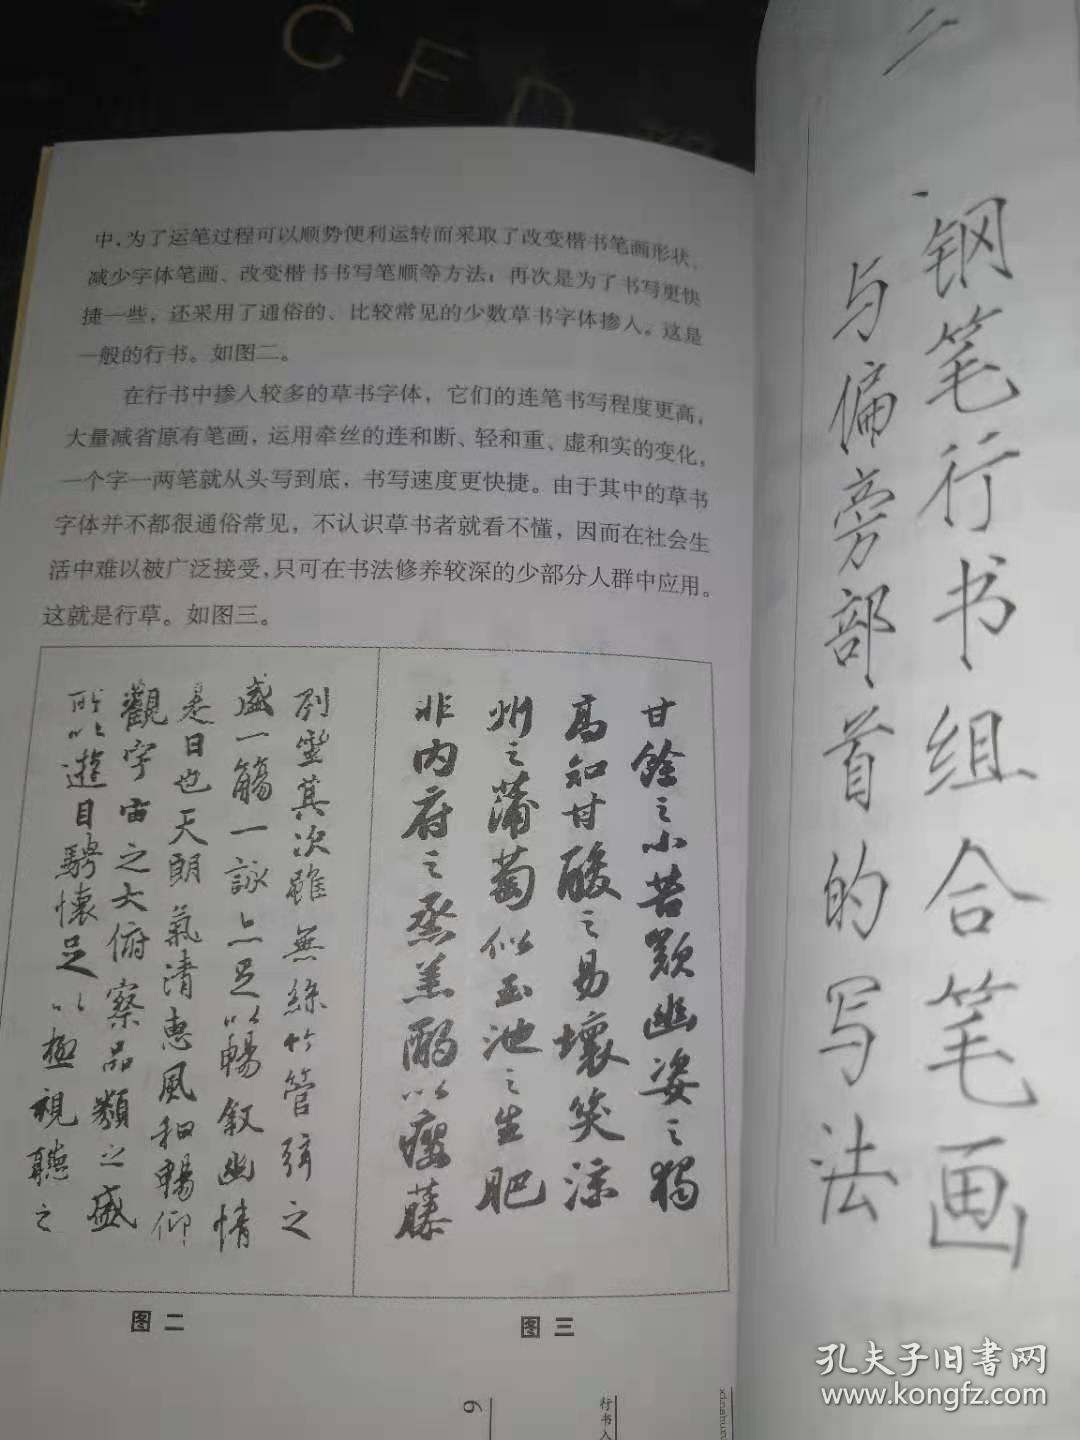 中,为了运笔过程可以顺势便利运转而采取了改变楷书笔画形状、
减少字体笔画、改变楷书书写笔顺等方法；再次是为了书写更快
捷一些，还采用了通俗的、比较常见的少数草书字体掺人。这是
一般的行书。如图二。
在行书中掺人较多的草书字体，它们的连笔书写程度更高，
大量减省原有笔画，运用牵丝的连和断、轻和重、虚和实的变化，
一个字一两笔就从头写到底，书写速度更快捷。由于其中的草书
字体并不都很通俗常见，不认识草书者就看不懂，因而在社会生
活中难以被广泛接受,只可在书法修养较深的少部分人群中应用。
这就是行草。如图三。
列坐其次雖無絲竹管弦之
盛一觴一詠亦足以暢敘幽情
是日也天朗氣清惠風和暢仰
觀宇宙之大俯察品類之盛
所以遊目騁懷足以極視聽之
图 二
甘餘之小苦歎幽姿之獨
高知甘酸之易壞笑涼
州之蒲萄似玉池之生肥
非内府之蒸羔酌以癭藤
图 三
9
行书入
二
钢笔行书组合笔画
与偏旁部首的写法
孔夫子旧書网
www.kongfz.com
CFD